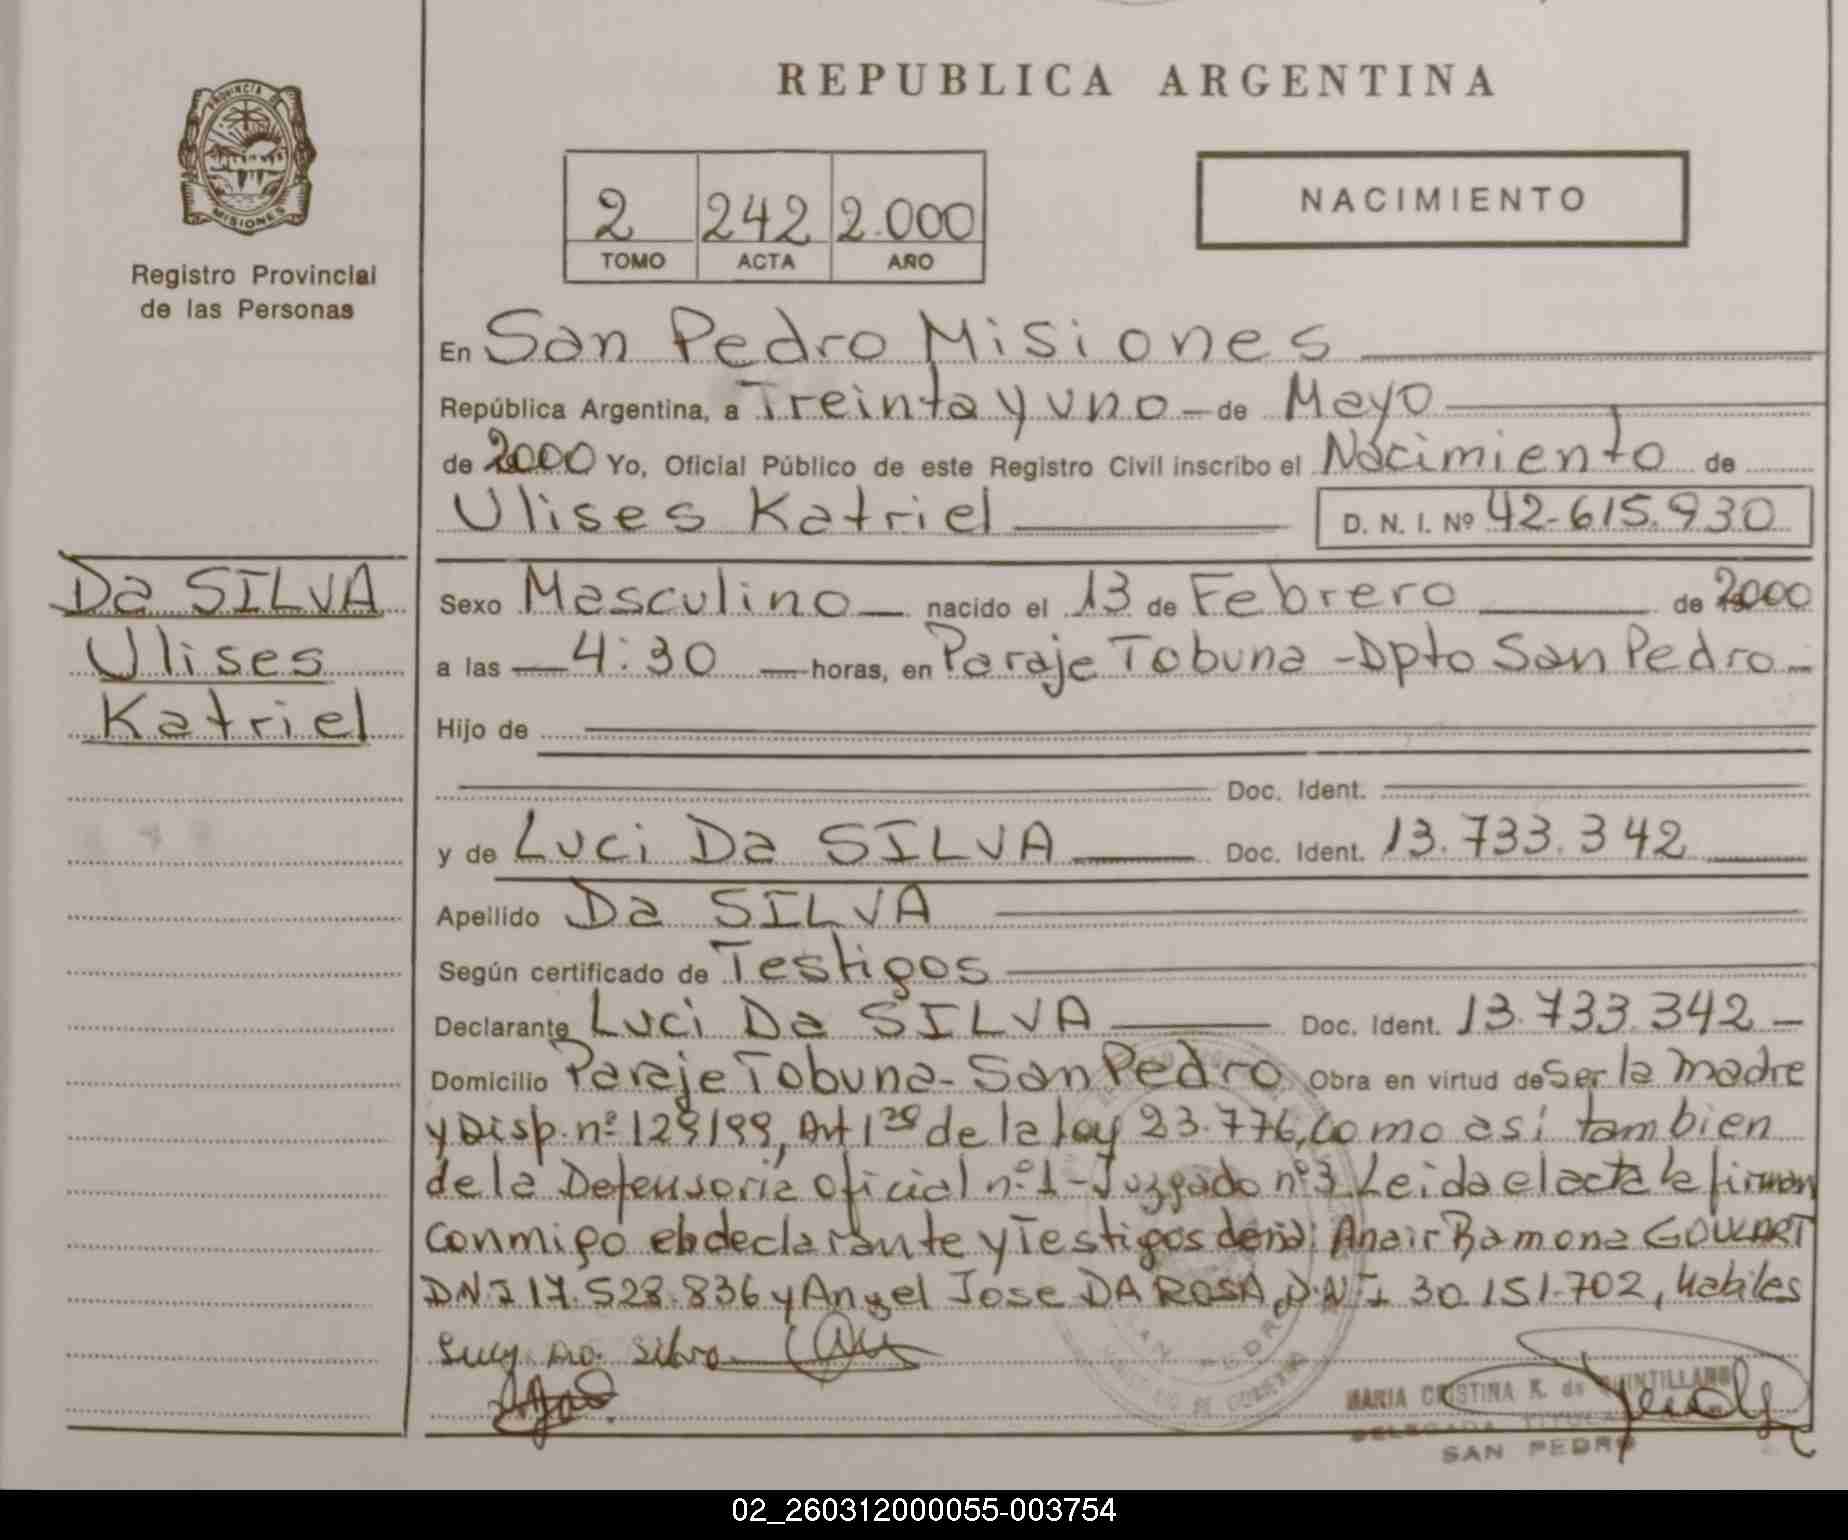 REPUBLICA ARGENTINA
PROVINCIA DE
MISIONES
Registro Provincial
de las Personas
2 242 2.000
TOMO ACTA AÑO
NACIMIENTO
En San Pedro Misiones
República Argentina, a Treinta y uno de Mayo
de 2000 Yo, Oficial Público de este Registro Civil inscribo el Nacimiento de
Ulises Katriel D. N. I. Nº 42-615.930
Da SILVA
Ulises
Katriel
Sexo Masculino nacido el 13 de Febrero de 2000
a las 4:30 horas, en Paraje Tobuna - Dpto San Pedro
Hijo de
Doc. Ident.
y de Luci Da SILVA Doc. Ident. 13.733.342
Apellido Da SILVA
Según certificado de Testigos
Declarante Luci Da SILVA Doc. Ident. 13.733.342
Domicilio Paraje Tobuna - San Pedro Obra en virtud de Ser la madre
y Disp. nº de la ley 23.776, como así tambien
de la Defensoria oficial nº 1 - Juzgado nº 3 Leida el acta la firman
conmigo declarante y Testigos Anair Ramona
DNI 17.528.836 y Angel Jose DA ROSA, D.N.I 30.151.702, habiles
Da Silva
MARIA CRISTINA K. de QUINTILLANO
DELEGADA TITULAR
SAN PEDRO
02_260312000055-003754